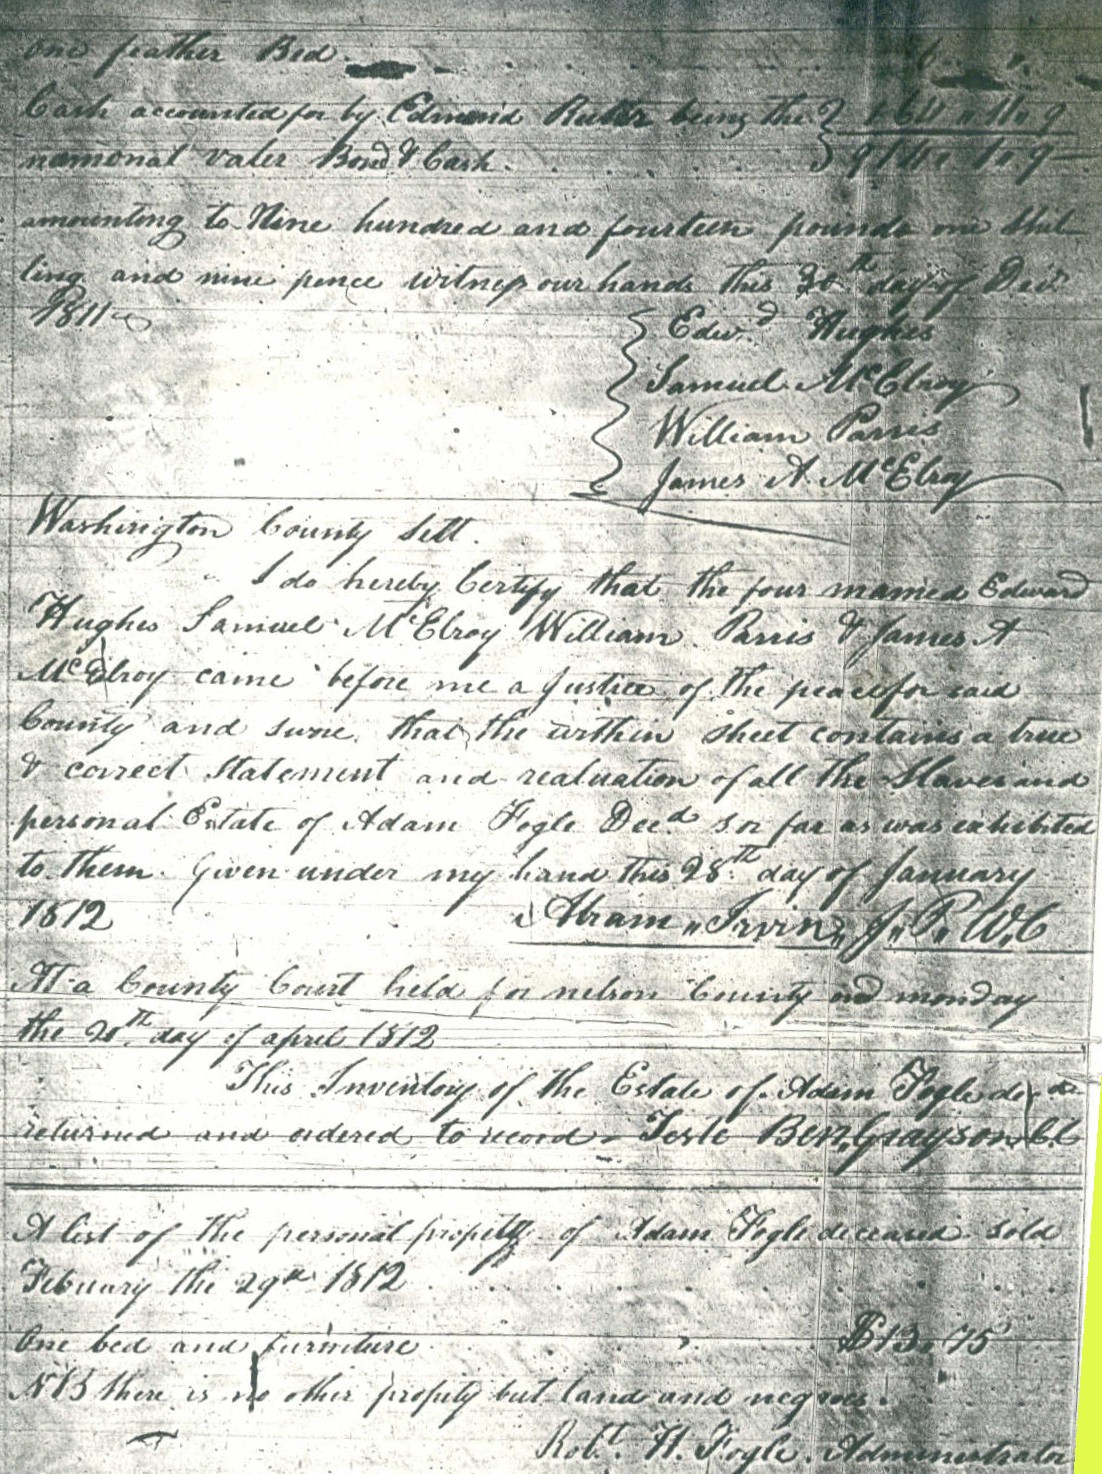 One feather Bed
Cash accounted for by Edmond Rutter being the
namonal valer Bond & Cash. 914 " 1 " 9
amounting to Nine hundred and fourteen pounds one Shil
ling and nine pence witness our hands this 30th day of Decr
1811
Edwd Hughes
Samuel McElroy
William Parris
James A. McElroy
Washington County Sctt.
I do hereby Certify that the four named Edward
Hughes Samuel McElroy William Parris & James A
McElroy came before me a Justice of the peace for said
County and swore that the within sheet contains a true
& correct Statement and realuation of all the Slaves and
personal Estate of Adam Fogle Decd so far as was exhibited
to them. Given under my hand this 28th day of January
1812 Abram " Irvin " J " P " W.C
At a County Court held for nelson County on monday
the 20th day of april 1812
This Inventory of the Estate of Adam Fogle
returned and ordered to record. Teste Ben, Grayson CC
A list of the personal property of Adam Fogle deceased sold
Febuary the 29th 1812
One bed and furniture $13.75
NB there is no other propety but land and negroes.
Robt. H. Fogle. Administrator